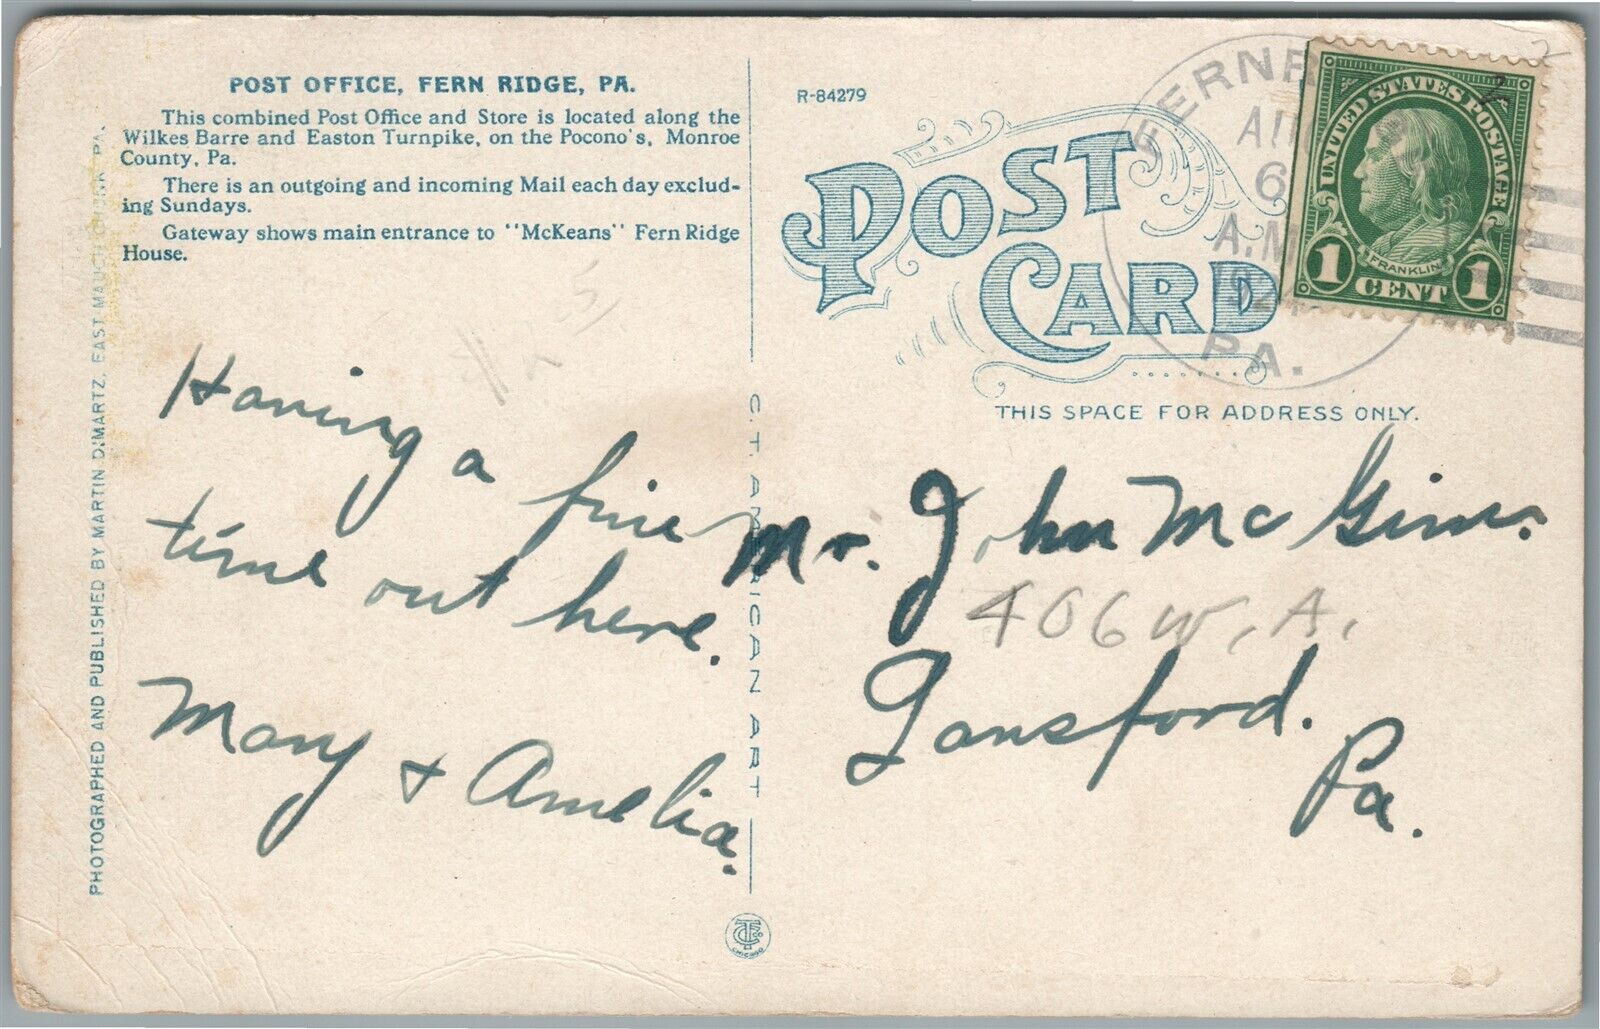 POST OFFICE, FERN RIDGE, PA.
This combined Post Office and Store is located along the
Wilkes Barre and Easton Turnpike, on the Pocono's, Monroe
County, Pa.
There is an outgoing and incoming Mail each day exclud-
ing Sundays.
Gateway shows main entrance to "McKeans" Fern Ridge
House.
PHOTOGRAPHED AND PUBLISHED BY MARTIN DIMARTZ, EAST MAUCH CHUNK PA.
Having a fine
time out here.
Mary & Amelia.
C. T. AMERICAN ART
CHICAGO
R-84279
POST
CARD
THIS SPACE FOR ADDRESS ONLY.
FERNR
6
A.M
PA.
UNITED STATES POSTAGE
FRANKLIN
1 CENT 1
Mr. John McGinn.
406 W. A.
Lansford.
Pa.